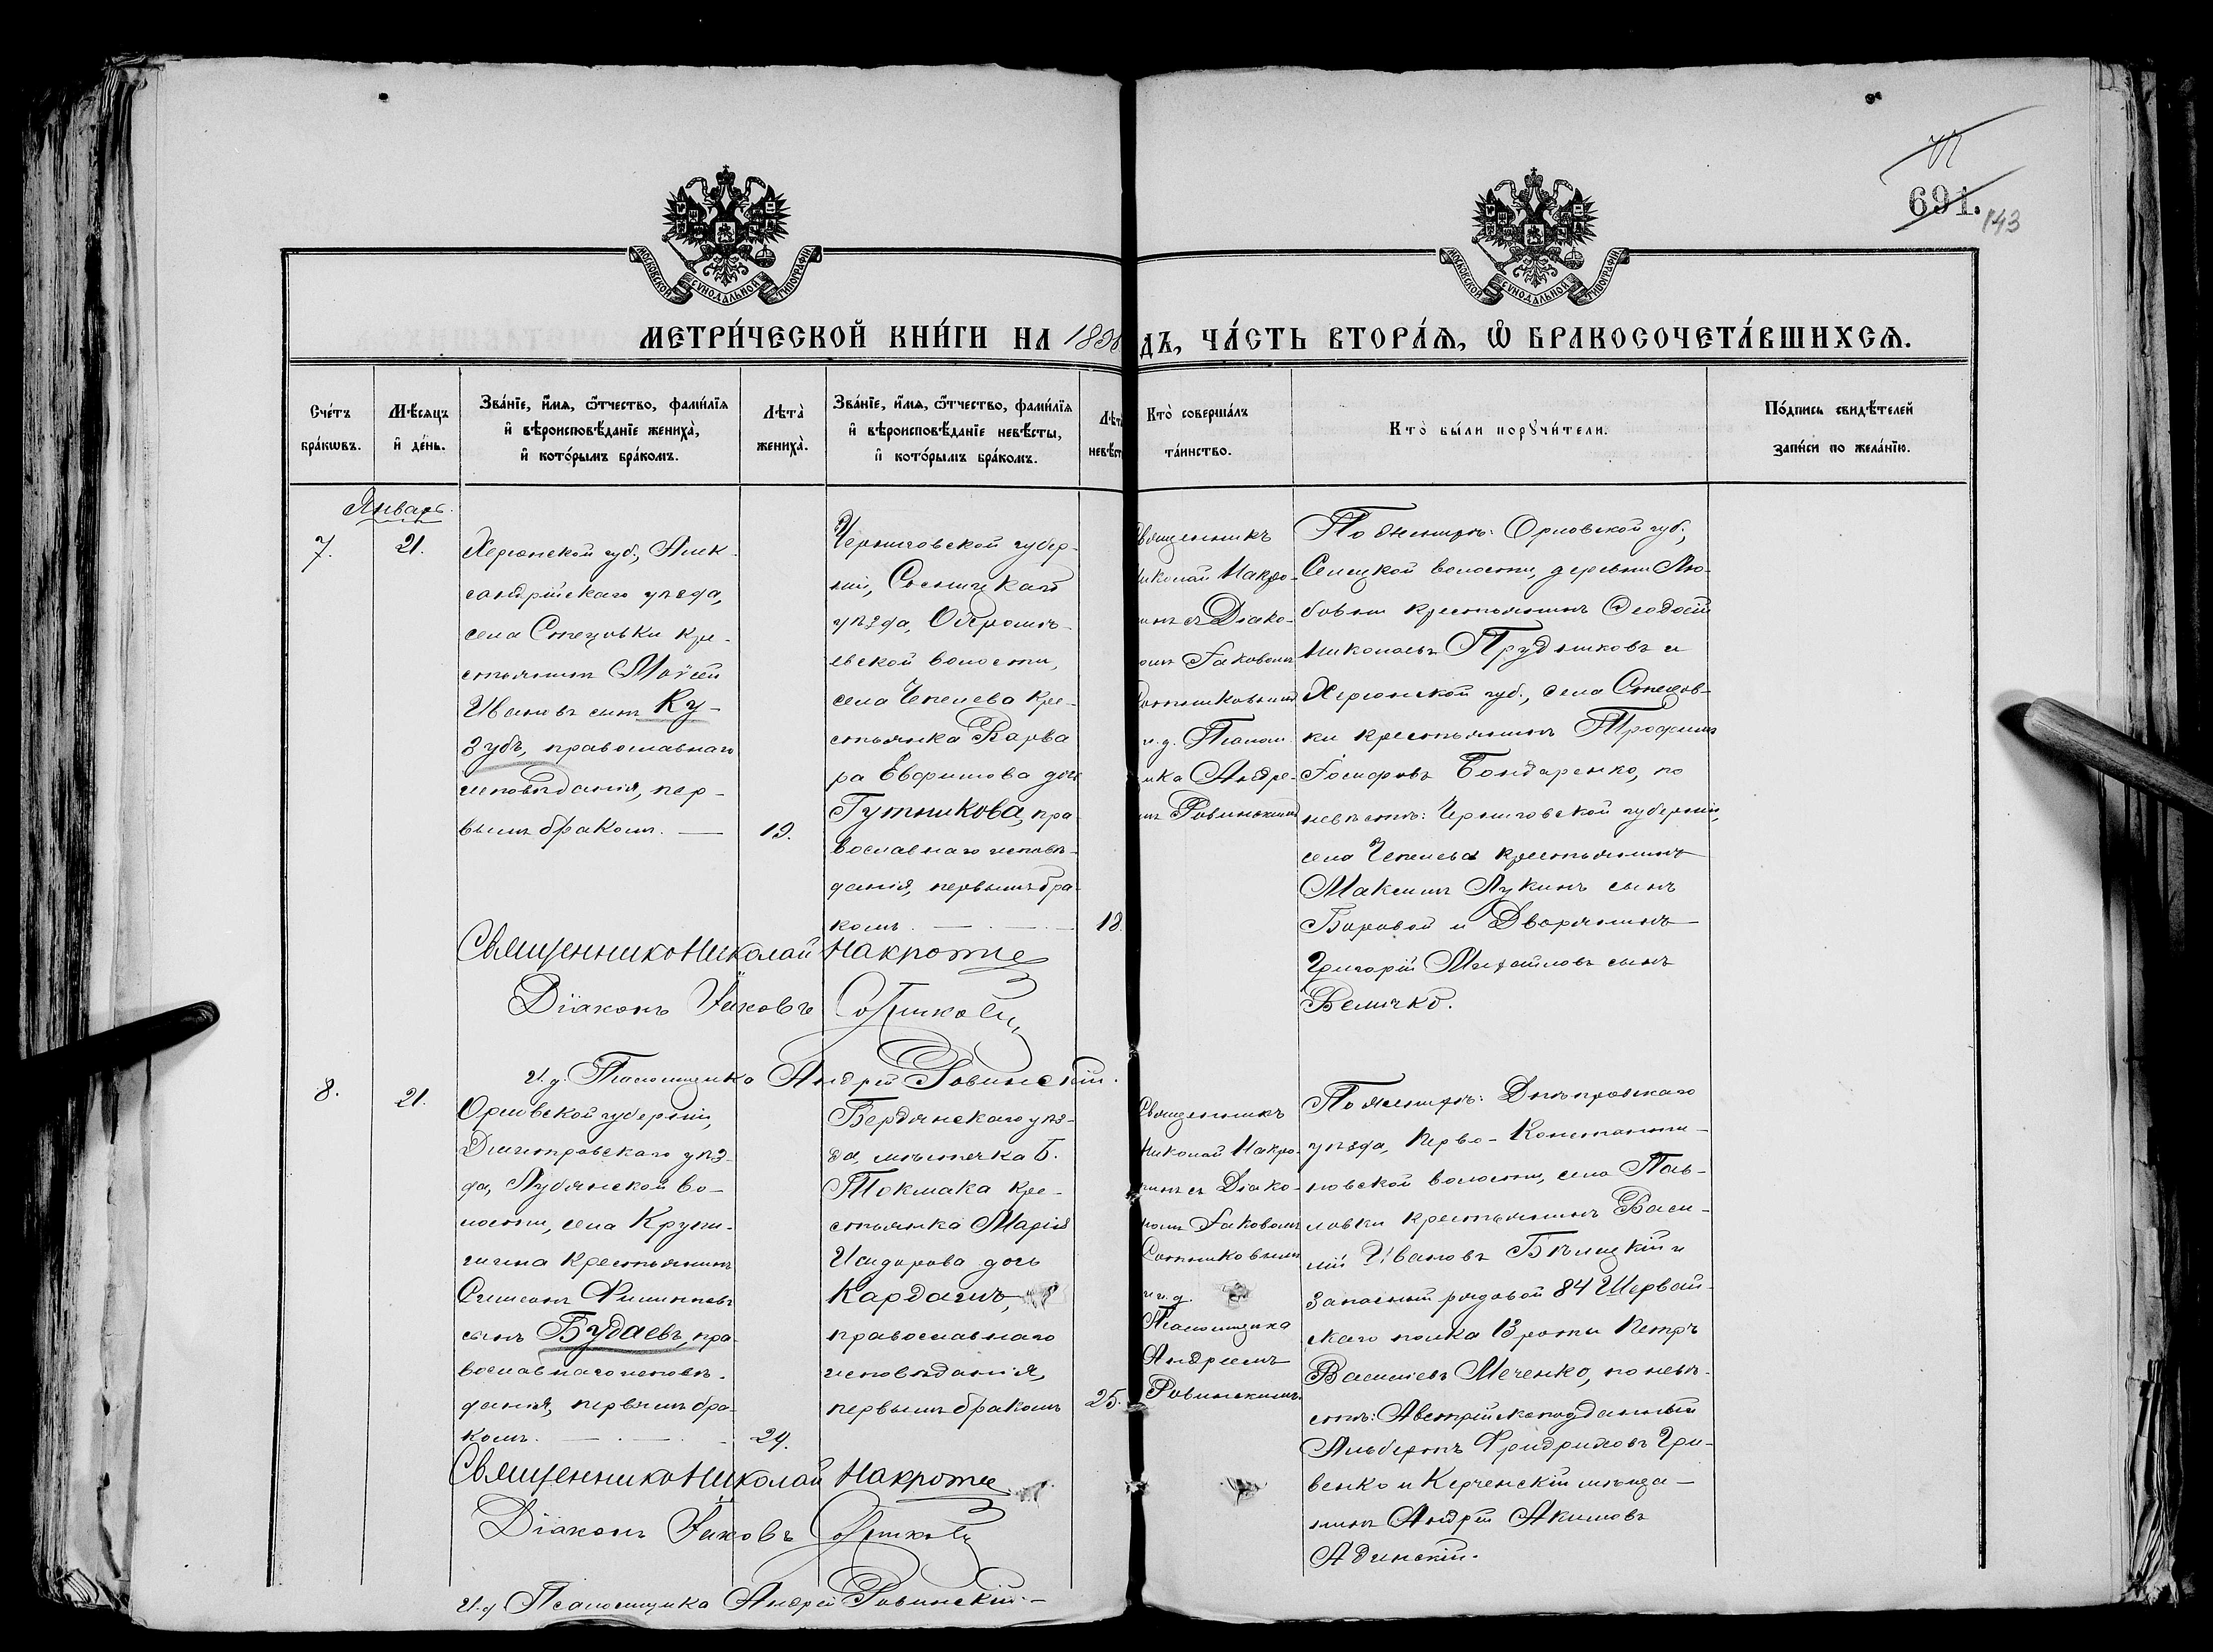 691.
143
МОСКОВСКОЙ СѴНОДАЛЬНОЙ ТИПОГРАФІИ
МОСКОВСКОЙ СѴНОДАЛЬНОЙ ТИПОГРАФІИ
МЕТРИ́ЧЕСКОЙ КНИ́ГИ НА 189
ДЪ, ЧА́СТЬ ВТОРА́Ѧ, Ѡ҆ БРАКОСОЧЕТА́ВШИХСѦ.
Сче́тъ
бра́кѡвъ.
Мѣ́сяцъ
и҆ де́нь.
Зва́нїе, и҆́мѧ, ѻ҆́тчество, фами́лїѧ
и҆ вѣроисповѣ́данїе жениха̀,
и҆ кото́рымъ бра́комъ.
Лѣта̀
жениха̀.
Зва́нїе, и҆́мѧ, ѻ҆́тчество, фами́лїѧ
и҆ вѣроисповѣ́данїе невѣ́сты,
и҆ кото́рымъ бра́комъ.
Лѣт
невѣ́ст
Кто̀ соверша́лъ
та́инство.
Кто̀ бы́ли порꙋчи́тели.
По́дпись свидѣ́телей
за́писи по жела́нїю.
Январь.
7.
21.
Херсонской губ., Алек-
сандрійскаго уѣзда,
села Стецовки кре-
стьянинъ Моѵсей
Ивановъ сынъ Ку-
зубъ, православнаго
исповѣданія, пер-
вымъ бракомъ. —
19.
Черниговской губер-
ніи, Сосницкаго
уѣзда,
евской волости,
села Чепелева кре-
стьянка Варва
ра Евфимова дочь
Гутникова, пра
вославнаго исповѣ-
данія, первымъ бра-
комъ. — . —
18.
вященникъ
иколай Накро-
съ Діако-
омъ Іаковомъ
Сотниковымъ
и.д. Псалом
ика Андре-
мъ Ровинскимъ
По женихѣ: Орловской губ.,
Селецкой волости, деревни Лю-
бовши крестьянинъ Ѳеодосій
Николаевъ Прудниковъ и
Херсонской губ., села Стецов-
ки крестьянинъ Трофимъ
Іосифовъ Бондаренко, по
невѣстѣ: Черниговской губерніи,
села Чепелева крестьянинъ
Максимъ Лукинъ сынъ
Боровой и Дворянинъ
Григорій Михайловъ сынъ
Величко.
Священникъ Николай Накроже
Діаконъ Іаковъ Сотниковъ
И. д. Псаломщика Андрей Ровинскій.
8.
21.
Орловской губерніи,
Дмитровскаго уѣз-
да, Лубянской во-
лости, села Крупы-
шина крестьянинъ
Симеонъ Филипповъ
сынъ Будаевъ, пра-
вославнаго исповѣ-
данія, первымъ бра-
комъ. — . —
24.
Бердянскаго уѣз-
да, мѣстечка Б.
Токмака кре-
стьянка Марія
Исидорова дочь
Кардашъ,
православнаго
исповѣданія,
первымъ бракомъ
25.
Священникъ
Николай Накро-
съ Діако-
номъ Іаковомъ
Сотниковымъ
и и.д.
Псаломщика
Андреемъ
Ровинскимъ.
По женихѣ: Днѣпровскаго
уѣзда, Перво-Константи-
новской волости, села Пав-
ловки крестьянинъ Васи-
лій Ивановъ Бѣлецкій и
запасный рядовой 84 Ширван-
скаго полка 13 роты Петръ
Василіевъ Меченко, по невѣ-
стѣ: Австрійскоподданный
Альбертъ Фридриховъ Гри-
венко и Керченскій мѣща-
нинъ Андрей Акимовъ
Адинскій.
Священникъ Николай Накроже
Діаконъ Іаковъ Сотниковъ
И. д. Псаломщика Андрей Ровинскій. —